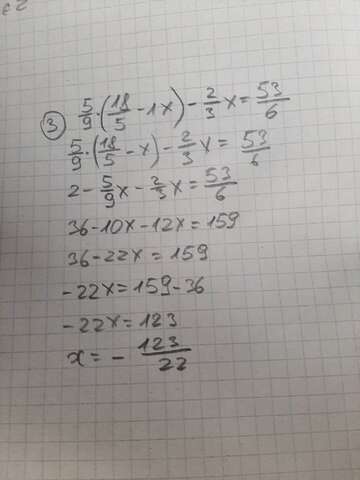 3) 5/9 · (18/5 - 1x) - 2/3 x = 53/6
5/9 · (18/5 - x) - 2/3 x = 53/6
2 - 5/9 x - 2/3 x = 53/6
36 - 10x - 12x = 159
36 - 22x = 159
-22x = 159 - 36
-22x = 123
x = - 123/22